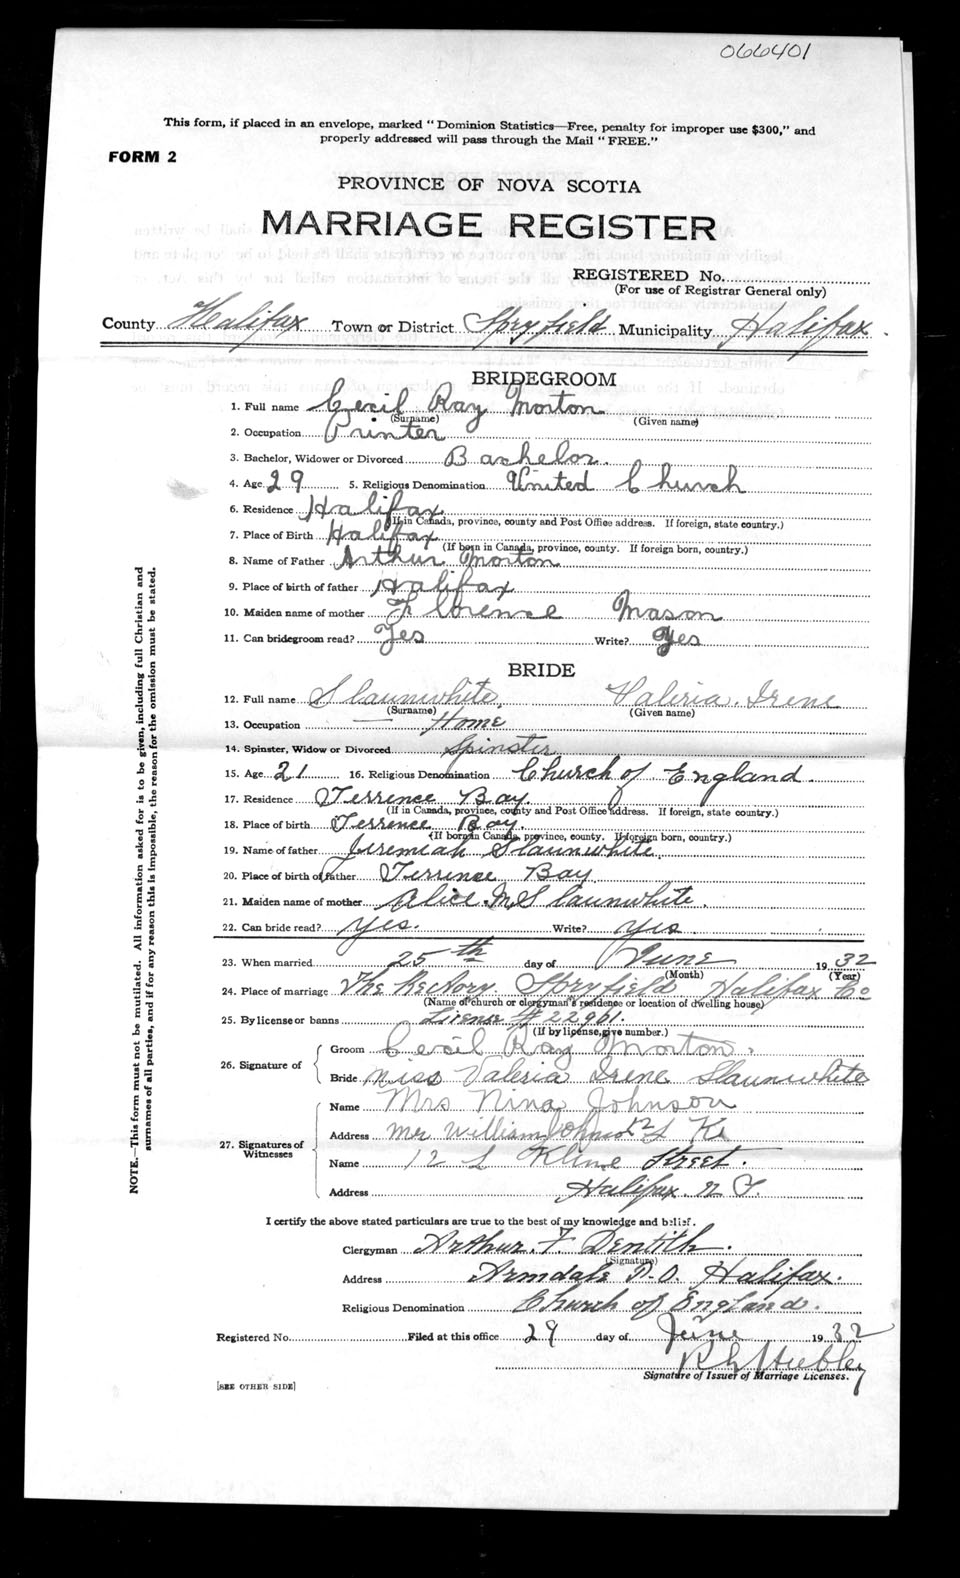 066401
This form, if placed in an envelope, marked "Dominion Statistics—Free, penalty for improper use $300," and
properly addressed will pass through the Mail "FREE."
FORM 2
PROVINCE OF NOVA SCOTIA
MARRIAGE REGISTER
REGISTERED No.
(For use of Registrar General only)
County Halifax Town or District Spryfield Municipality Halifax.
BRIDEGROOM
1. Full name Cecil Ray Morton
(Surname) (Given name)
2. Occupation Printer
3. Bachelor, Widower or Divorced Bachelor.
4. Age 29 5. Religious Denomination United Church
6. Residence Halifax
(If in Canada, province, county and Post Office address. If foreign, state country.)
7. Place of Birth Halifax
(If born in Canada, province, county. If foreign born, country.)
8. Name of Father Arthur Morton
9. Place of birth of father Halifax
10. Maiden name of mother Florence Mason
11. Can bridegroom read? Yes Write? Yes
BRIDE
12. Full name Slaunwhite, Valeria Irene
(Surname) (Given name)
13. Occupation — Home
14. Spinster, Widow or Divorced Spinster
15. Age 21 16. Religious Denomination Church of England.
17. Residence Terrence Bay.
(If in Canada, province, county and Post Office address. If foreign, state country.)
18. Place of birth Terrence Bay.
(If born in Canada, province, county. If foreign born, country.)
19. Name of father Jeremiah Slaunwhite.
20. Place of birth of father Terrence Bay
21. Maiden name of mother Alice M. Slaunwhite.
22. Can bride read? Yes. Write? Yes.
23. When married 25th day of June 1932
(Month) (Year)
24. Place of marriage The Rectory. Spryfield Halifax Co
(Name of church or clergyman's residence or location of dwelling house)
25. By license or banns License # 22961.
(If by license, give number.)
26. Signature of
Groom Cecil Ray Morton.
Bride Miss Valeria Irene Slaunwhite
27. Signatures of Witnesses
Name Mrs Nina Johnson
Address Mr William Johnson
Name 12 Kline Street.
Address Halifax. N.S.
I certify the above stated particulars are true to the best of my knowledge and belief.
Clergyman Arthur. F. Dentith.
(Signature)
Address Armdale P.O. Halifax.
Religious Denomination Church of England.
Registered No. Filed at this office 29 day of June 1932
R L Hubley
Signature of Issuer of Marriage Licenses.
[SEE OTHER SIDE]
NOTE.—This form must not be mutilated. All information asked for is to be given, including full Christian and
surnames of all parties, and if for any reason this is impossible, the reason for the omission must be stated.